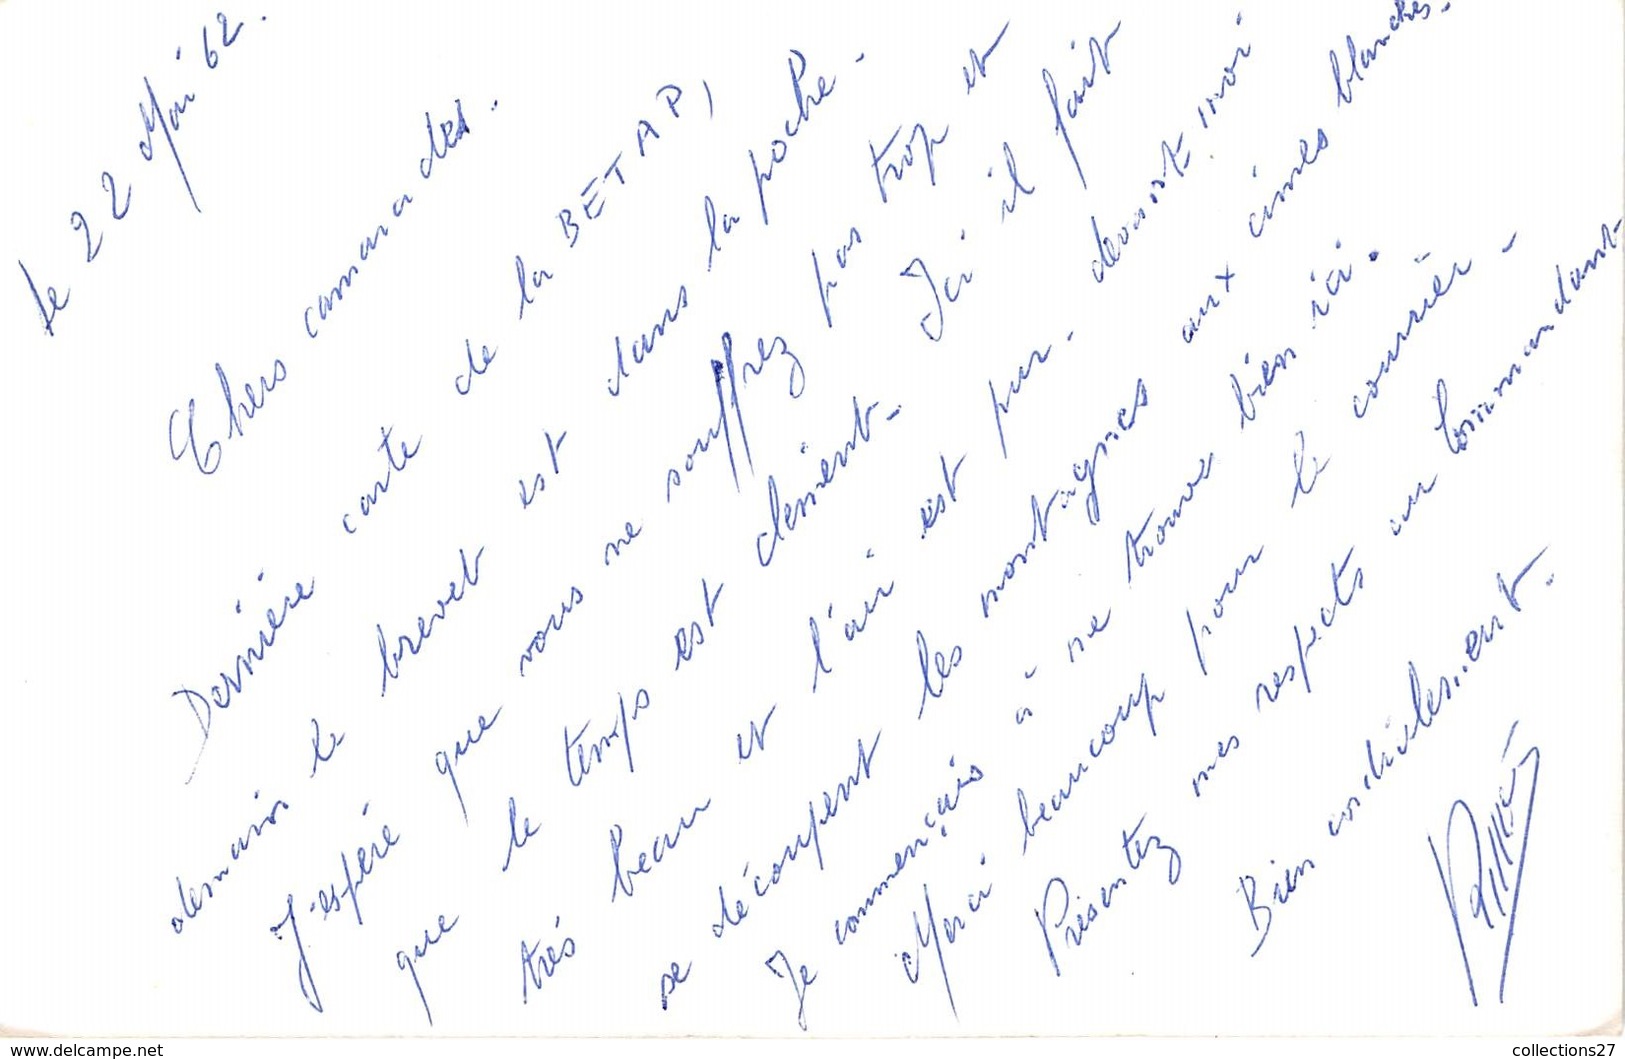 le 22 Mai 62.
Chers camarades.
Dernière carte de la BETAP,
demain le brevet est dans la poche.
J'espère que vous ne souffrez pas trop et
que le temps est clément. Ici il fait
très beau et l'air est pur. devant moi
se découpent les montagnes aux cimes blanches.
Je commençais à me trouver bien ici.
Merci beaucoup pour le courrier.
Présentez mes respects au Commandant
Bien cordialement.
www.delcampe.net
collections27